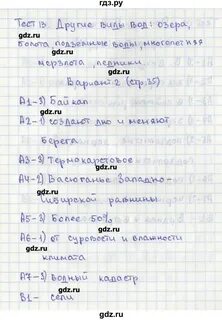 гдз.ру
Тест 13. Другие виды вод: озера,
болота, подземные воды, многолетняя
мерзлота, ледники.
Вариант 2 (стр.35)
А1-3) Байкал
А2-1) создают дно и меняют
берега
А3-3) Термокарстовое
А4-2) Васюганье Западно-
Сибирской равнины
А5-3) Более 50%
А6-1) от суровости и влажности
климата
А7-3) водный кадастр
В1- сели